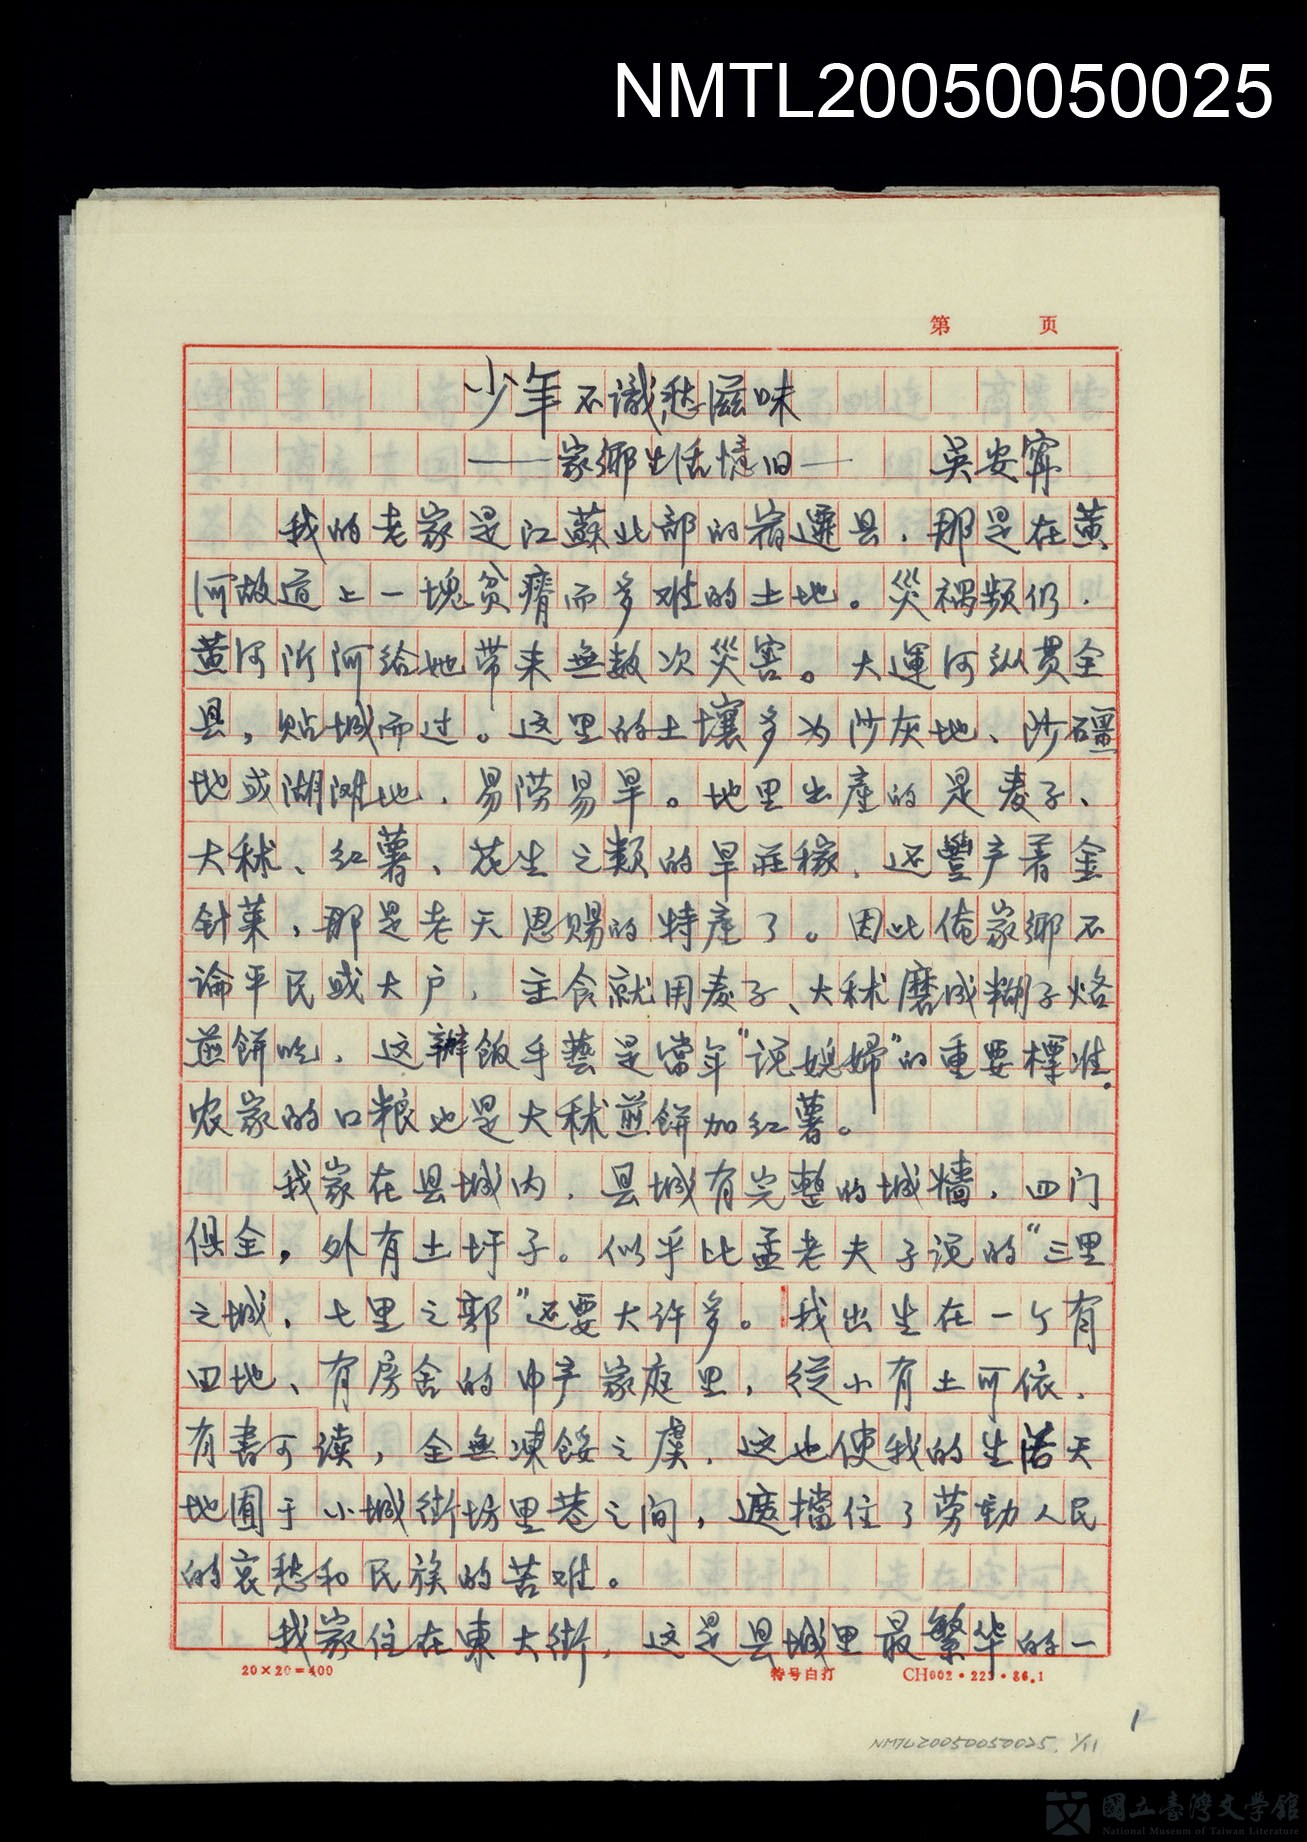 NMTL20050050025
第 页
少年不識愁滋味
——家鄉生活憶旧—— 吳安寗
我的老家是江蘇北部的宿遷县，那是在黄
河故道上一塊贫瘠而多难的土地。災禍频仍，
黄河所河给她带来無数次災害。大運河纵贯全
县，贴城而过。这里的土壤多为沙灰地、沙礓
地或湖滩地，易涝易旱。地里出產的是麦子、
大秫、红薯、花生之類的旱莊稼，还豐产着金
针菜，那是老天恩赐的特產了。因此俺家鄉不
論平民或大户，主食就用麦子、大秫磨成糊子烙
煎餅吃，这辦飯手藝是當年“说媳婦”的重要標准。
农家的口粮也是大秫煎餅加红薯。
我家在县城内，县城有完整的城墻，四门
俱全，外有土圩子。似乎比孟老夫子说的“三里
之城，七里之郭”还要大许多。我出生在一个有
田地、有房舍的中产家庭里，從小有土可依，
有書可读，全無凍餒之虞，这也使我的生活天
地囿于小城街坊里巷之间，遮擋住了劳動人民
的哀愁和民族的苦难。
我家住在東大街，这是县城里最繁华的一
20×20=400 特号白打 CH002·223·86.1
1
NMTL20050050025. 1/11
國立臺灣文學館
National Museum of Taiwan Literature